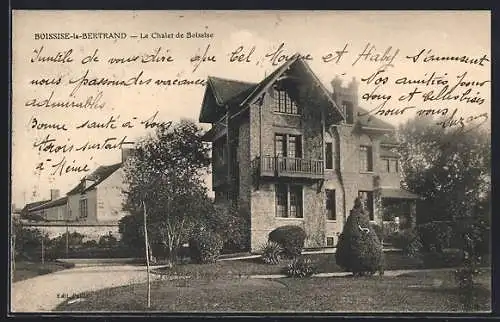 BOISSISE-la-BERTRAND — Le Chalet de Boissise
Inutile de vous dire que Bel Moque et Haby s'amusent
nous passons des vacances
admirables
Nos amitiés pour
tous et célestes
Bonne santé à
tous surtout
à Mémé
à vous
Edit.